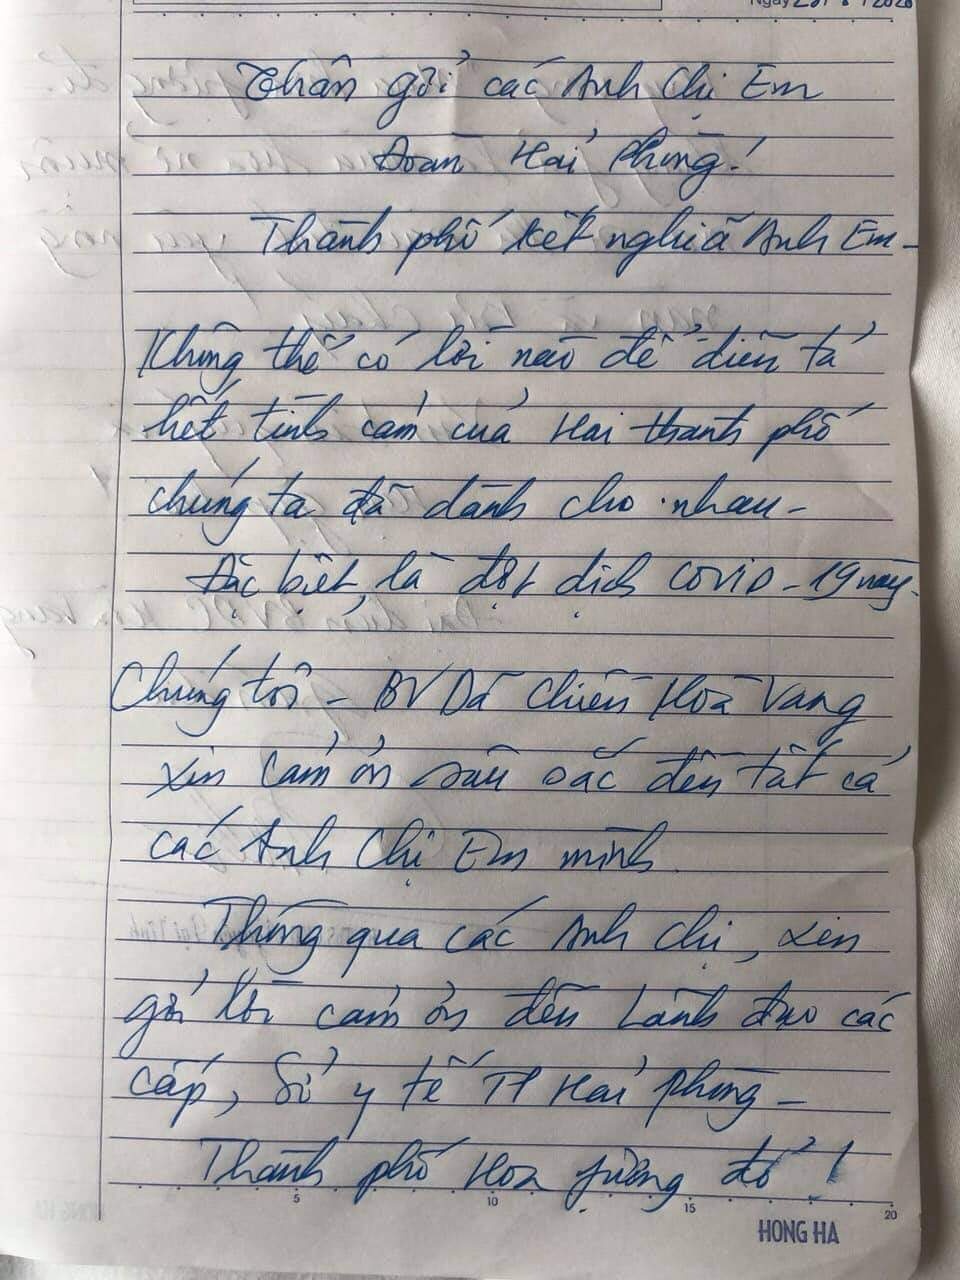 Ngày 2020
Thân gởi các Anh Chị Em
Đoàn Hải Phòng!
Thành phố kết nghĩa Anh Em -
Không thể có lời nào để diễn tả
hết tình cảm của Hai thành phố
chúng ta đã dành cho nhau -
Đặc biệt, là đợt dịch COVID - 19 này.
Chúng tôi - BV Dã Chiến Hoà Vang
xin cảm ơn sâu sắc đến tất cả
các Anh Chị Em mình.
Thông qua các Anh chị, xin
gởi lời cảm ơn đến Lãnh đạo các
cấp, Sở y tế TP Hải Phòng -
Thành phố Hoa phượng đỏ!
5 10 15 20
HONG HA